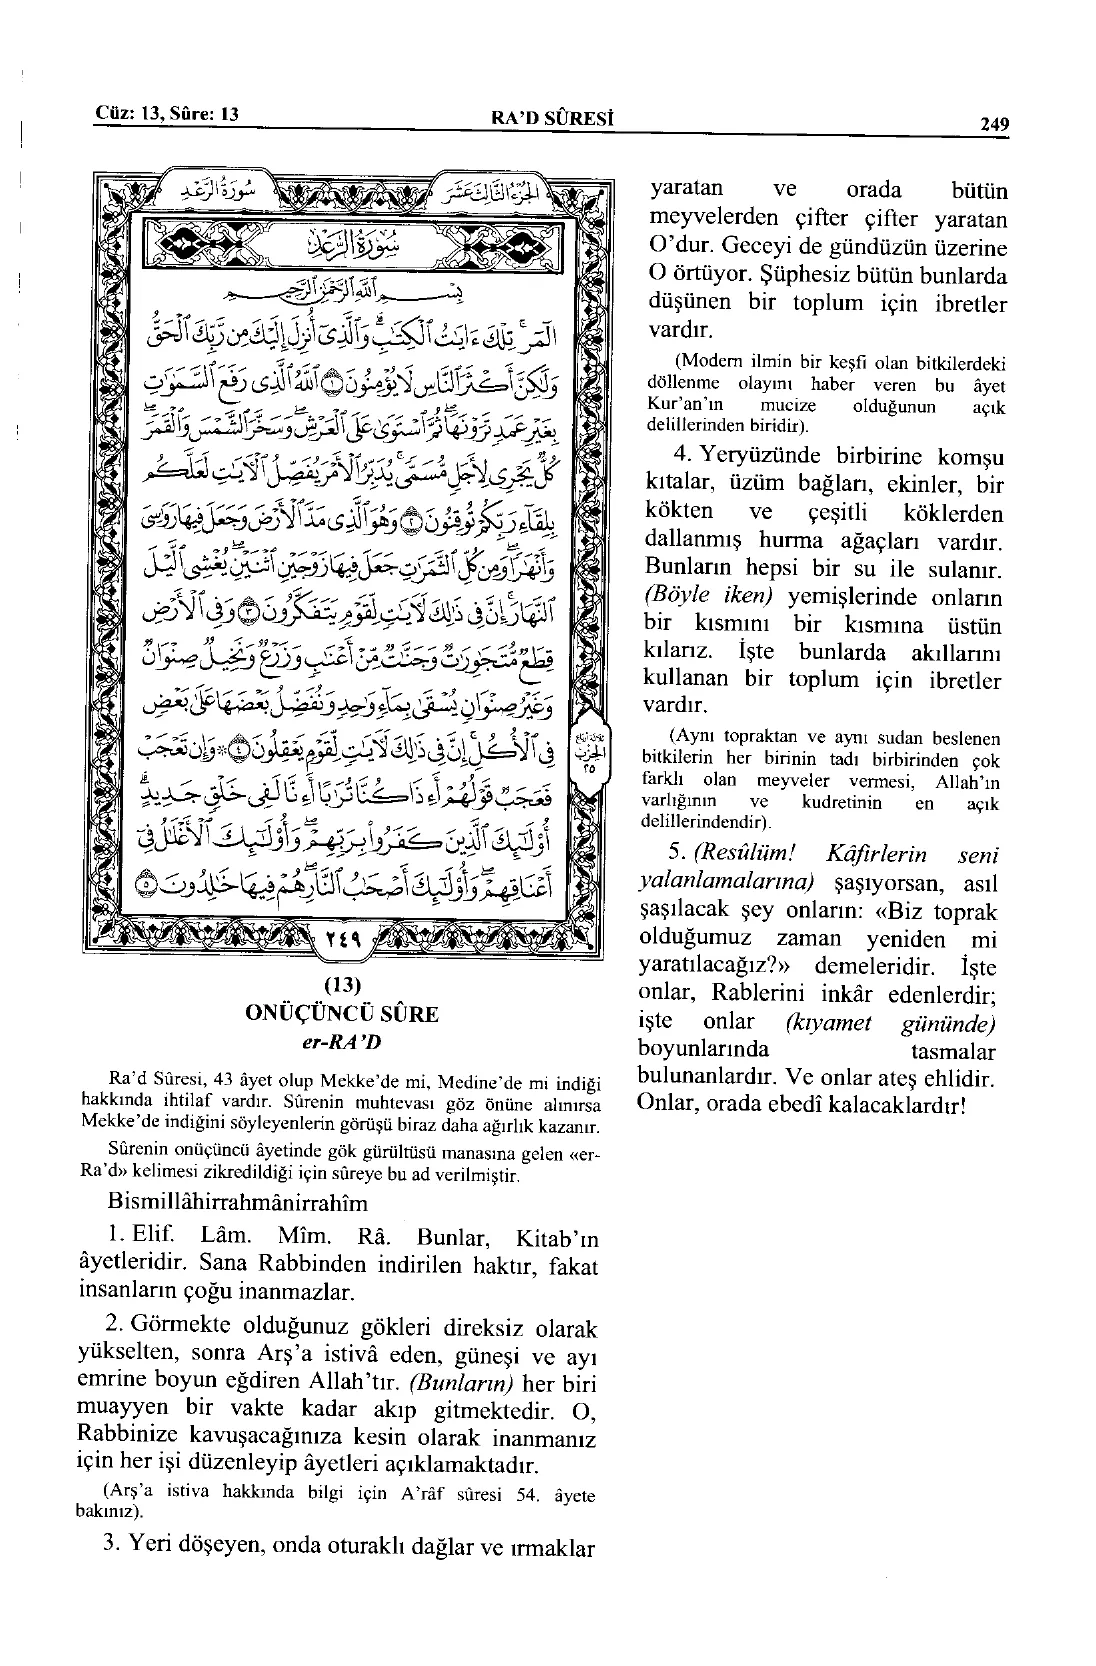 Cüz: 13, Sûre: 13
RA’D SÛRESİ
249
سُورَةُ الرَّعْدِ
الجُزْءُ الثَّالِثَ عَشَرَ
سُورَةُ الرَّعْدِ
بِسْمِ ٱللَّهِ ٱلرَّحْمَٰنِ ٱلرَّحِيمِ
الٓمٓر ۚ تِلْكَ ءَايَٰتُ ٱلْكِتَٰبِ ۗ وَٱلَّذِىٓ أُنزِلَ إِلَيْكَ مِن رَّبِّكَ ٱلْحَقُّ
وَلَٰكِنَّ أَكْثَرَ ٱلنَّاسِ لَا يُؤْمِنُونَ ١ ٱللَّهُ ٱلَّذِى رَفَعَ ٱلسَّمَٰوَٰتِ
بِغَيْرِ عَمَدٍ تَرَوْنَهَا ۖ ثُمَّ ٱسْتَوَىٰ عَلَى ٱلْعَرْشِ ۖ وَسَخَّرَ ٱلشَّمْسَ وَٱلْقَمَرَ ۖ
كُلٌّ يَجْرِى لِأَجَلٍ مُّسَمًّى ۚ يُدَبِّرُ ٱلْأَمْرَ يُفَصِّلُ ٱلْءَايَٰتِ لَعَلَّكُم
بِلِقَآءِ رَبِّكُمْ تُوقِنُونَ ٢ وَهُوَ ٱلَّذِى مَدَّ ٱلْأَرْضَ وَجَعَلَ فِيهَا رَوَٰسِىَ
وَأَنْهَٰرًا ۖ وَمِن كُلِّ ٱلثَّمَرَٰتِ جَعَلَ فِيهَا زَوْجَيْنِ ٱثْنَيْنِ ۖ يُغْشِى ٱلَّيْلَ
ٱلنَّهَارَ ۚ إِنَّ فِى ذَٰلِكَ لَءَايَٰتٍ لِّقَوْمٍ يَتَفَكَّرُونَ ٣ وَفِى ٱلْأَرْضِ
قِطَعٌ مُّتَجَٰوِرَٰتٌ وَجَنَّٰتٌ مِّنْ أَعْنَٰبٍ وَزَرْعٌ وَنَخِيلٌ صِنْوَانٌ
وَغَيْرُ صِنْوَانٍ يُسْقَىٰ بِمَآءٍ وَٰحِدٍ وَنُفَضِّلُ بَعْضَهَا عَلَىٰ بَعْضٍ
فِى ٱلْأُكُلِ ۚ إِنَّ فِى ذَٰلِكَ لَءَايَٰتٍ لِّقَوْمٍ يَعْقِلُونَ ٤ * وَإِن تَعْجَبْ
فَعَجَبٌ قَوْلُهُمْ أَءِذَا كُنَّا تُرَٰبًا أَءِنَّا لَفِى خَلْقٍ جَدِيدٍ ۗ
أُو۟لَٰٓئِكَ ٱلَّذِينَ كَفَرُوا۟ بِرَبِّهِمْ ۖ وَأُو۟لَٰٓئِكَ ٱلْأَغْلَٰلُ فِىٓ
أَعْنَاقِهِمْ ۖ وَأُو۟لَٰٓئِكَ أَصْحَٰبُ ٱلنَّارِ ۖ هُمْ فِيهَا خَٰلِدُونَ ٥
الحزب
٢٥
٢٤٩
(13)
ONÜÇÜNCÜ SÛRE
er-RA’D
Ra’d Sûresi, 43 âyet olup Mekke’de mi, Medine’de mi indiği
hakkında ihtilaf vardır. Sûrenin muhtevası göz önüne alınırsa
Mekke’de indiğini söyleyenlerin görüşü biraz daha ağırlık kazanır.
Sûrenin onüçüncü âyetinde gök gürültüsü manasına gelen «er-
Ra’d» kelimesi zikredildiği için sûreye bu ad verilmiştir.
Bismillâhirrahmânirrahîm
1. Elif. Lâm. Mîm. Râ. Bunlar, Kitab’ın
âyetleridir. Sana Rabbinden indirilen haktır, fakat
insanların çoğu inanmazlar.
2. Görmekte olduğunuz gökleri direksiz olarak
yükselten, sonra Arş’a istivâ eden, güneşi ve ayı
emrine boyun eğdiren Allah’tır. (Bunların) her biri
muayyen bir vakte kadar akıp gitmektedir. O,
Rabbinize kavuşacağınıza kesin olarak inanmanız
için her işi düzenleyip âyetleri açıklamaktadır.
(Arş’a istiva hakkında bilgi için A’râf sûresi 54. âyete
bakınız).
3. Yeri döşeyen, onda oturaklı dağlar ve ırmaklar
yaratan ve orada bütün
meyvelerden çifter çifter yaratan
O’dur. Geceyi de gündüzün üzerine
O örtüyor. Şüphesiz bütün bunlarda
düşünen bir toplum için ibretler
vardır.
(Modern ilmin bir keşfi olan bitkilerdeki
döllenme olayını haber veren bu âyet
Kur’an’ın mucize olduğunun açık
delillerinden biridir).
4. Yeryüzünde birbirine komşu
kıtalar, üzüm bağları, ekinler, bir
kökten ve çeşitli köklerden
dallanmış hurma ağaçları vardır.
Bunların hepsi bir su ile sulanır.
(Böyle iken) yemişlerinde onların
bir kısmını bir kısmına üstün
kılarız. İşte bunlarda akıllarını
kullanan bir toplum için ibretler
vardır.
(Aynı topraktan ve aynı sudan beslenen
bitkilerin her birinin tadı birbirinden çok
farklı olan meyveler vermesi, Allah’ın
varlığının ve kudretinin en açık
delillerindendir).
5. (Resûlüm! Kâfirlerin seni
yalanlamalarına) şaşıyorsan, asıl
şaşılacak şey onların: «Biz toprak
olduğumuz zaman yeniden mi
yaratılacağız?» demeleridir. İşte
onlar, Rablerini inkâr edenlerdir;
işte onlar (kıyamet gününde)
boyunlarında tasmalar
bulunanlardır. Ve onlar ateş ehlidir.
Onlar, orada ebedî kalacaklardır!